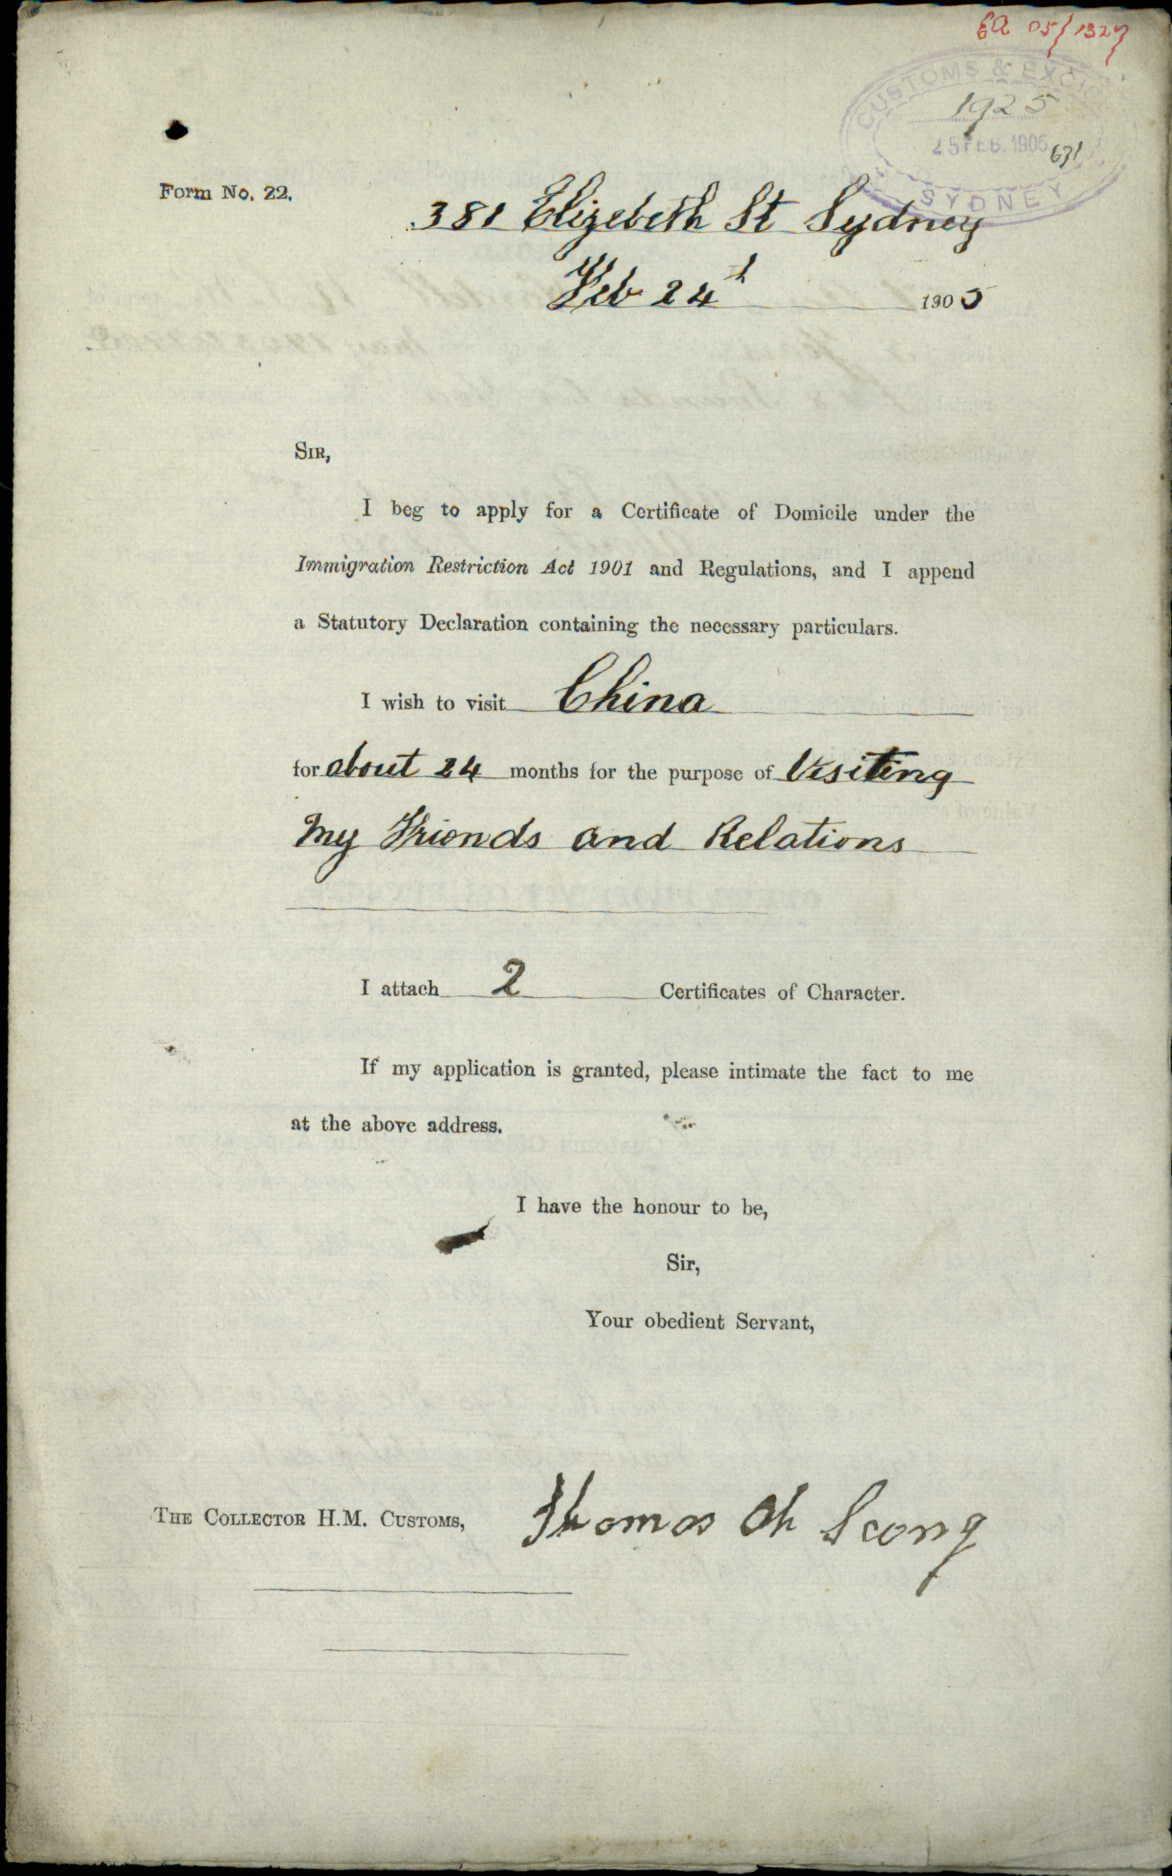 6a 05/1327
CUSTOMS & EXCISE
1925
25 FEB. 1905
631
SYDNEY
Form No. 22.
381 Elizebeth St Sydney
Feb 24th 1905
SIR,
I beg to apply for a Certificate of Domicile under the
Immigration Restriction Act 1901 and Regulations, and I append
a Statutory Declaration containing the necessary particulars.
I wish to visit China
for about 24 months for the purpose of Visiting
My Friends and Relations
I attach 2 Certificates of Character.
If my application is granted, please intimate the fact to me
at the above address.
I have the honour to be,
Sir,
Your obedient Servant,
THE COLLECTOR H.M. CUSTOMS,
Thomas Ah Scong